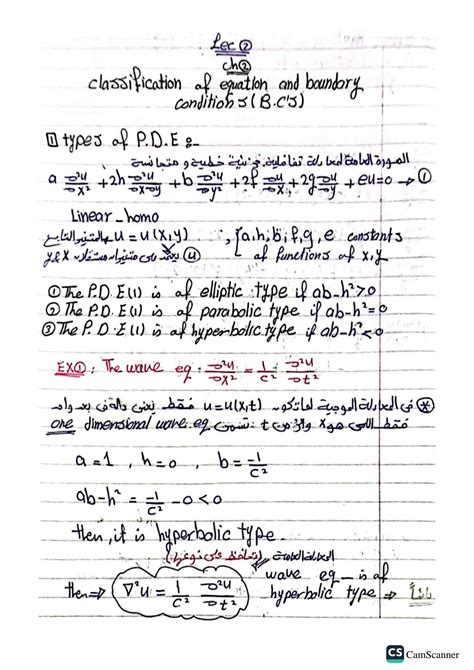 Lec ②
ch②
classification of equation and boundory
conditions (B.C's)
① types of P.D.E :-
الصورة العامة لمعادلة تفاضلية جزئية خطية و متجانسة
a ∂²u/∂x² + 2h ∂²u/∂x∂y + b ∂²u/∂y² + 2f ∂u/∂x + 2g ∂u/∂y + eu = 0 → ①
Linear_homo
u = u(x,y) , {a,h,b,f,g,e constants
المتغير التابع
(u) يعتمد على متغيرات مستقلة x و y
of functions of x,y
① The P.D.E(1) is of elliptic type if ab-h²>0
② The P.D.E(1) is of parabolic type if ab-h²=0
③ The P.D.E(1) is of hyperbolic type if ab-h²<0
EX①: The wave eq. ∂²u/∂x² = 1/c² . ∂²u/∂t²
⊛ في المعادلة الموجية لما تكون u=u(x,t) فقط يعني دالة في بعد واحد
فقط اللي هو x والزمن t تسمى one dimensional wave eq
a = 1 , h = 0 , b = -1/c²
ab-h² = -1/c² - 0 < 0
then, it is hyperbolic type.
المعادلة العامة (تحافظ على نوعها)
then ⇒ ∇²u = 1/c² ∂²u/∂t²
wave eq_ is of
hyperbolic type ⇒ دائماً
CS CamScanner